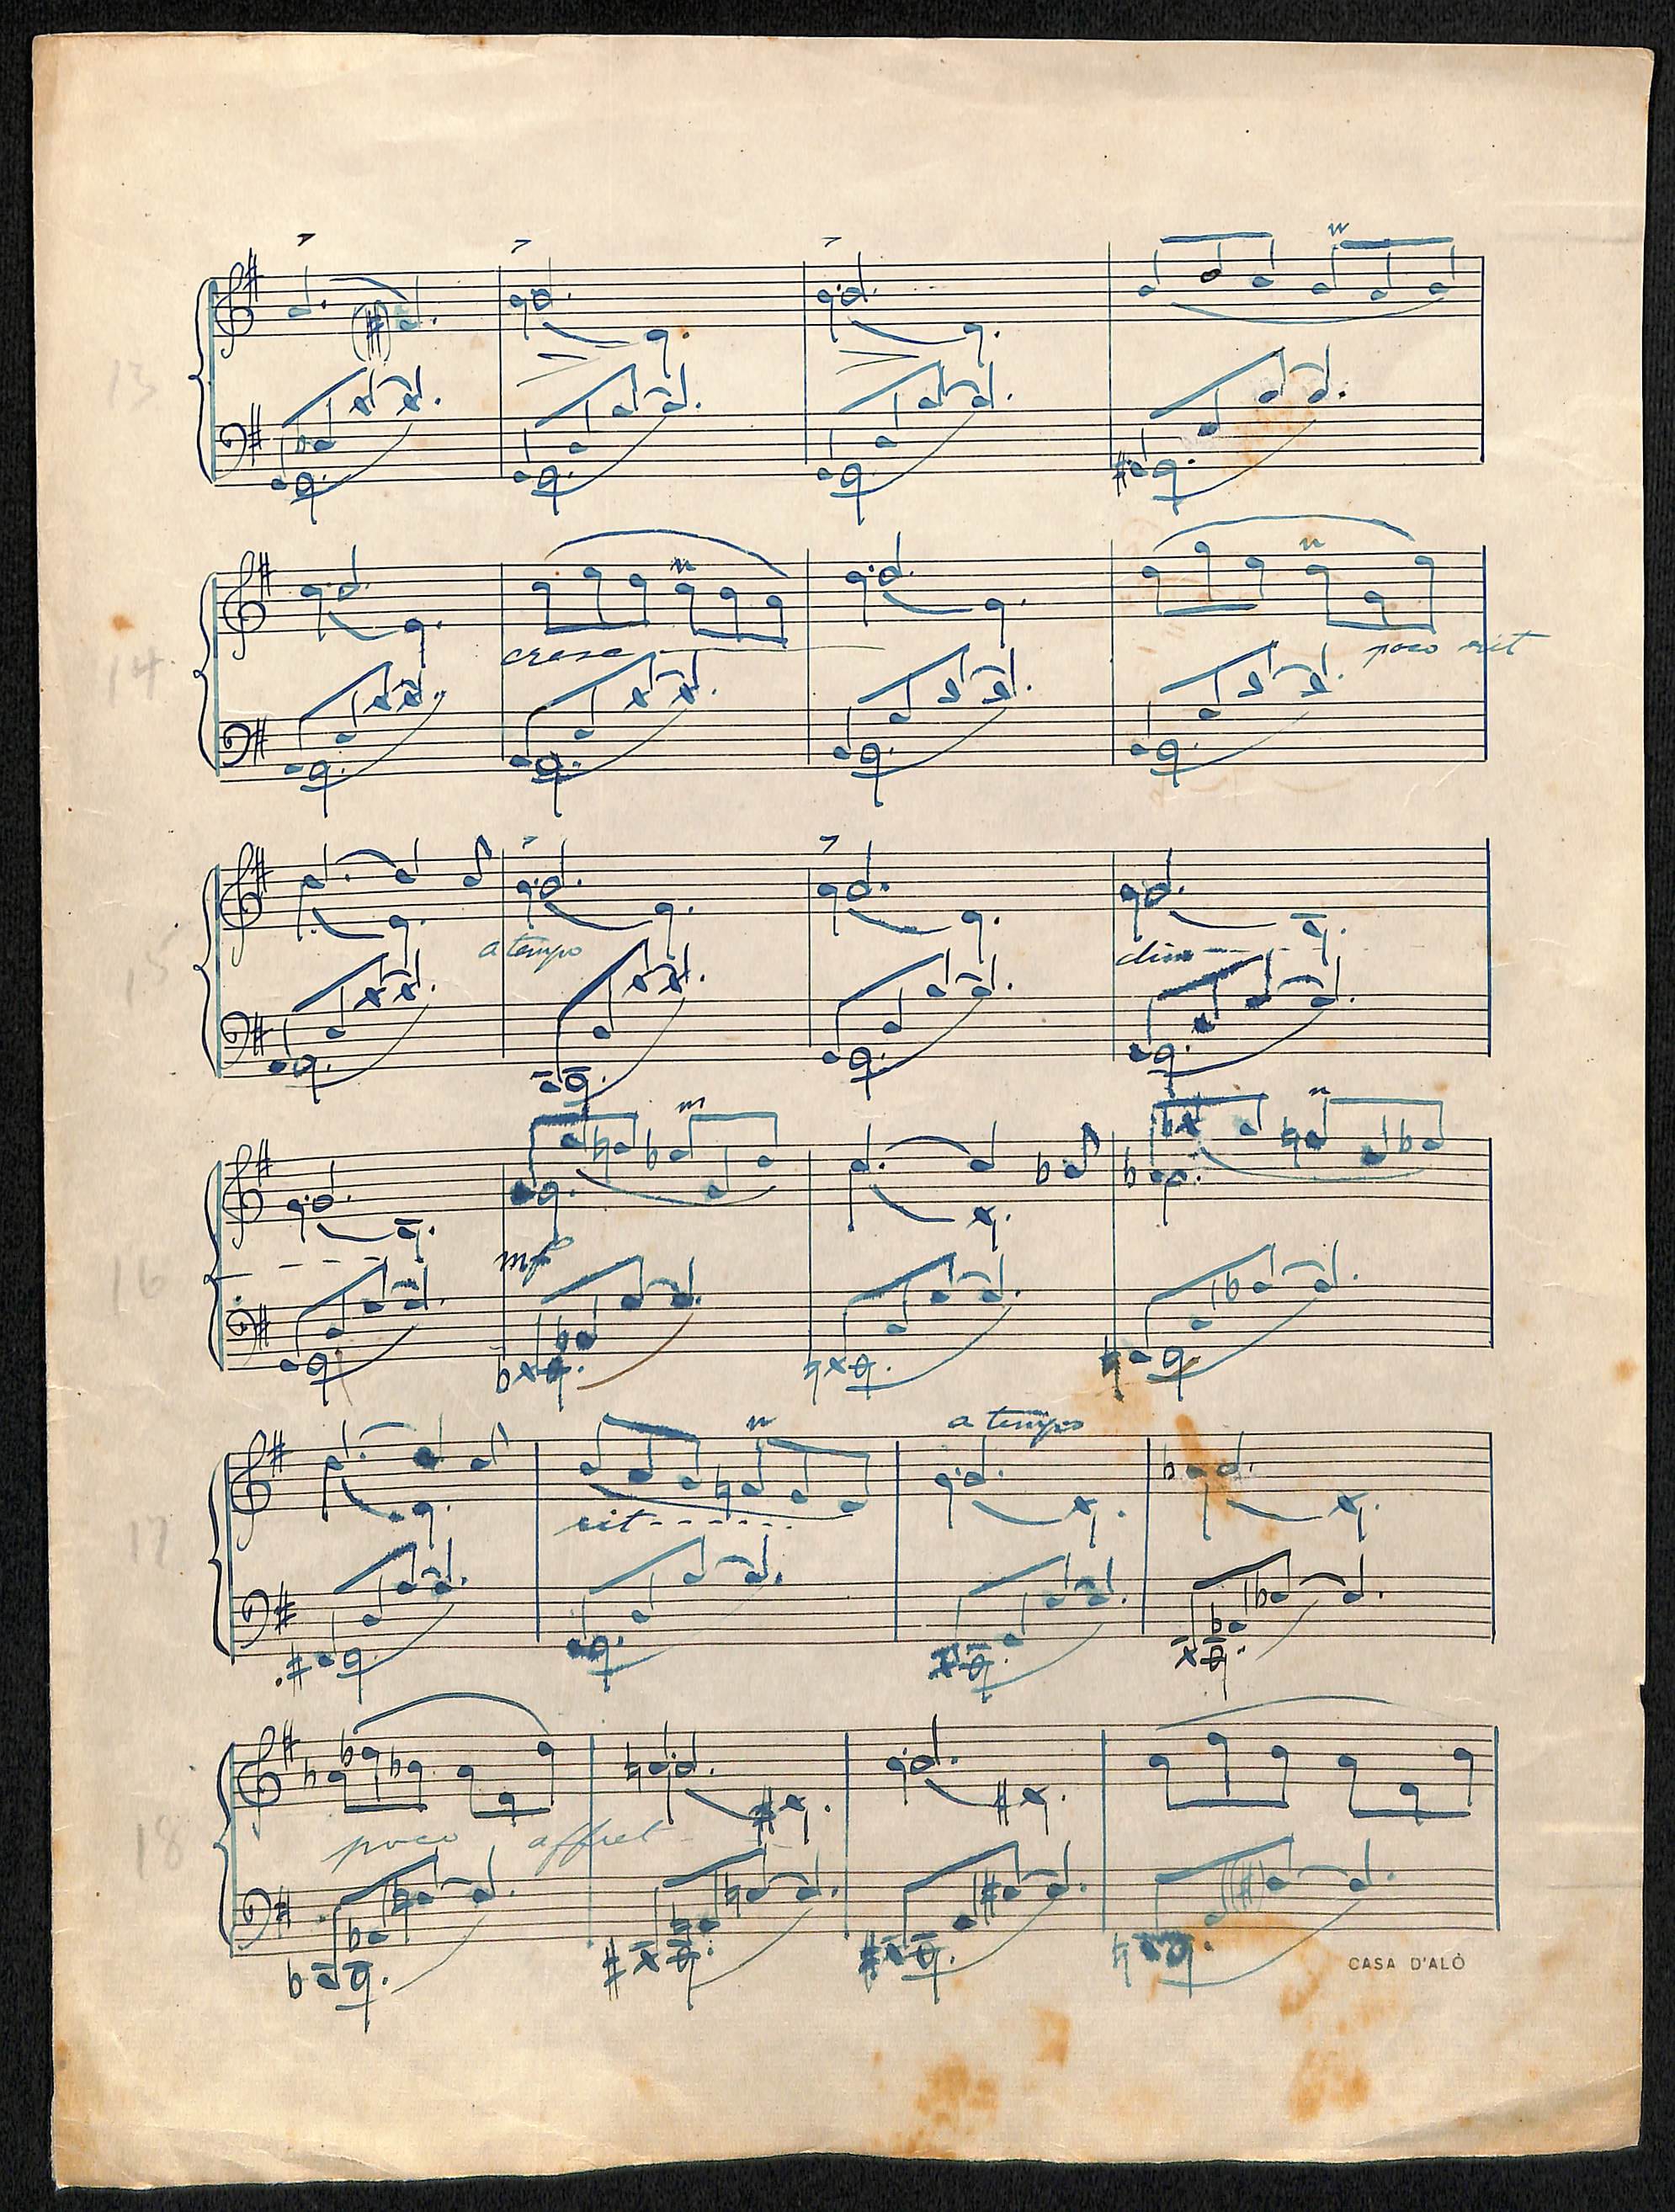 13
14
cresc
poco rit
15
a tempo
dim
16
mf
a tempo
17
rit
18
poco affret
CASA D'ALÒ